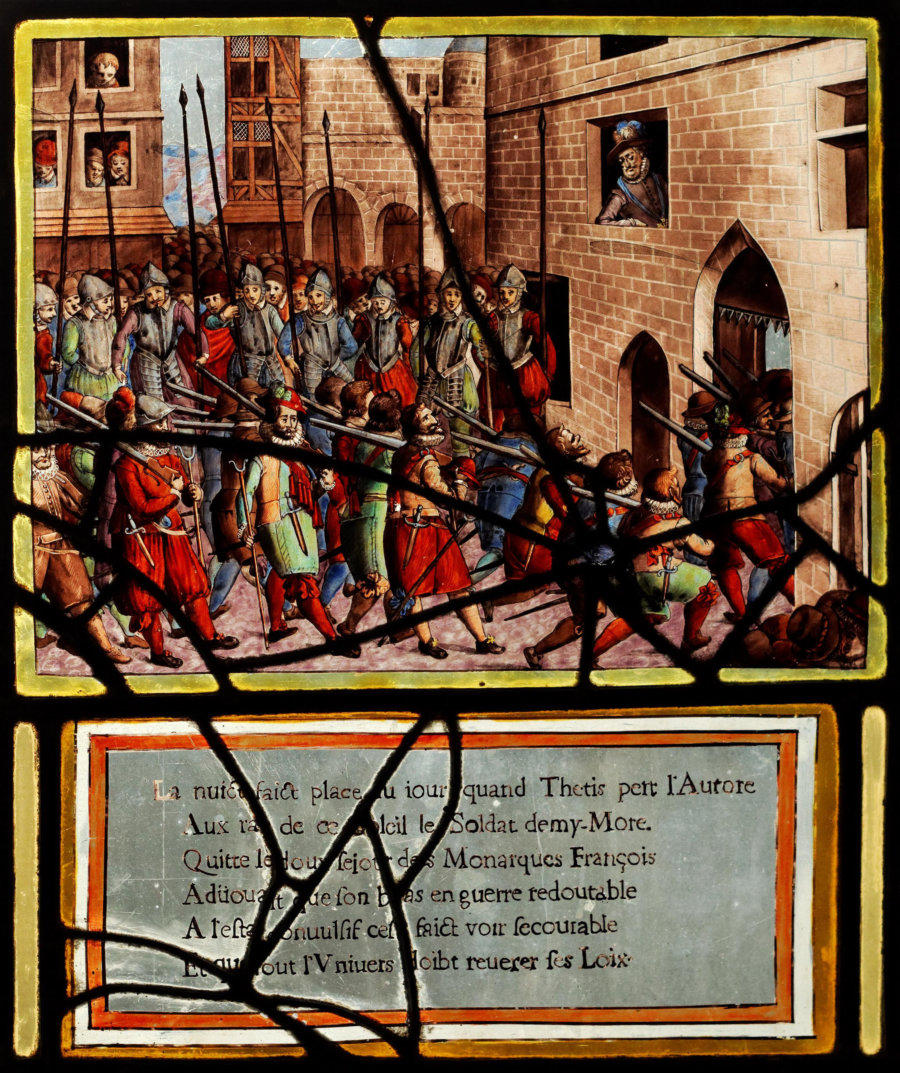 La nuict faict place au iour quand Thetis pert l'Aurore
Aux rais de ce Soleil le Soldat demy-More.
Quitte le doux ſejour des Monarques François
Adüouant que ſon bras en guerre redoutable
A l'eſtat conuulſif ceſt faict voir ſecourable
Et que tout l'Vniuers doibt reuerer ſes Loix.